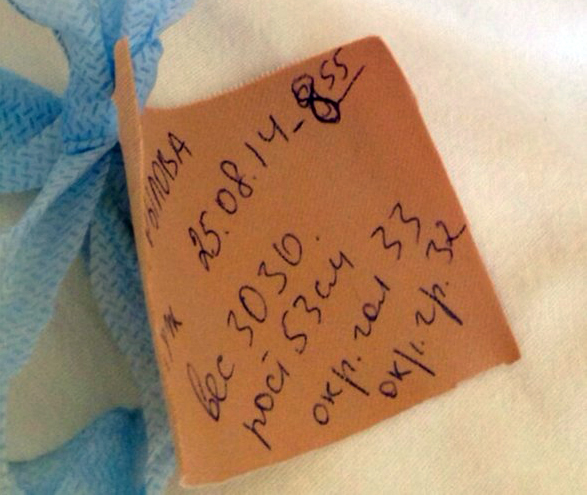 25.08.14-8 55
вес 3030.
рост 53 см
окр. гол 33
окр. гр. 32